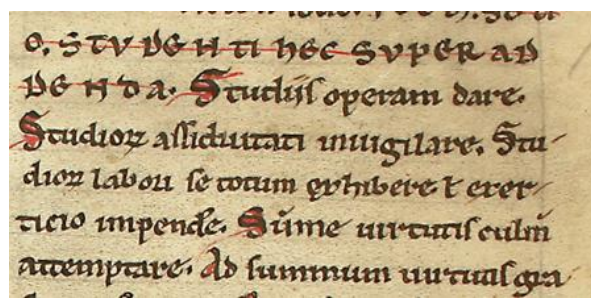 o. STVDENTI HEC SVPER AD
DENDA. Studiis operam dare.
Studioꝝ assiduitati inuigilare. Stu-
dioꝝ labori se totum exhibere ⁊ exer-
ticio impend̄e. Sūme uirtutis culm̄
attemptare. Ad summum uirtutis gra